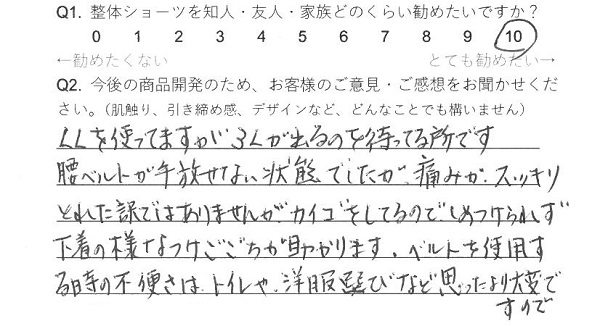 Q1. 整体ショーツを知人・友人・家族どのくらい勧めたいですか？
0 1 2 3 4 5 6 7 8 9 10
←勧めたくない とても勧めたい→
Q2. 今後の商品開発のため、お客様のご意見・ご感想をお聞かせくだ
さい。（肌触り、引き締め感、デザインなど、どんなことでも構いません）
LLを使ってますが3Lが出るのを待ってる所です
腰ベルトが手放せない状態でしたが、痛みが、スッキリ
とれた訳ではありませんが、カイゴをしてるのでしめつけられず
下着の様なつけごごちが助かります。ベルトを使用す
る時の不便さは、トイレや、洋服選びなど思ったより大変で
すので